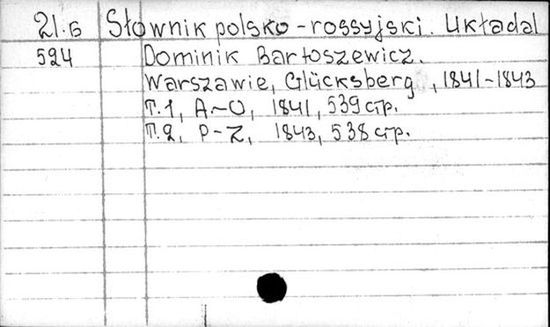 21.б Słownik polsko-rossyjski. Układal
594 Dominik Bartoszewicz.
Warszawie, Glücksberg, 1841-1843
Т.1, A-O, 1841, 539 стр.
Т.2, P-Z, 1843, 538 стр.